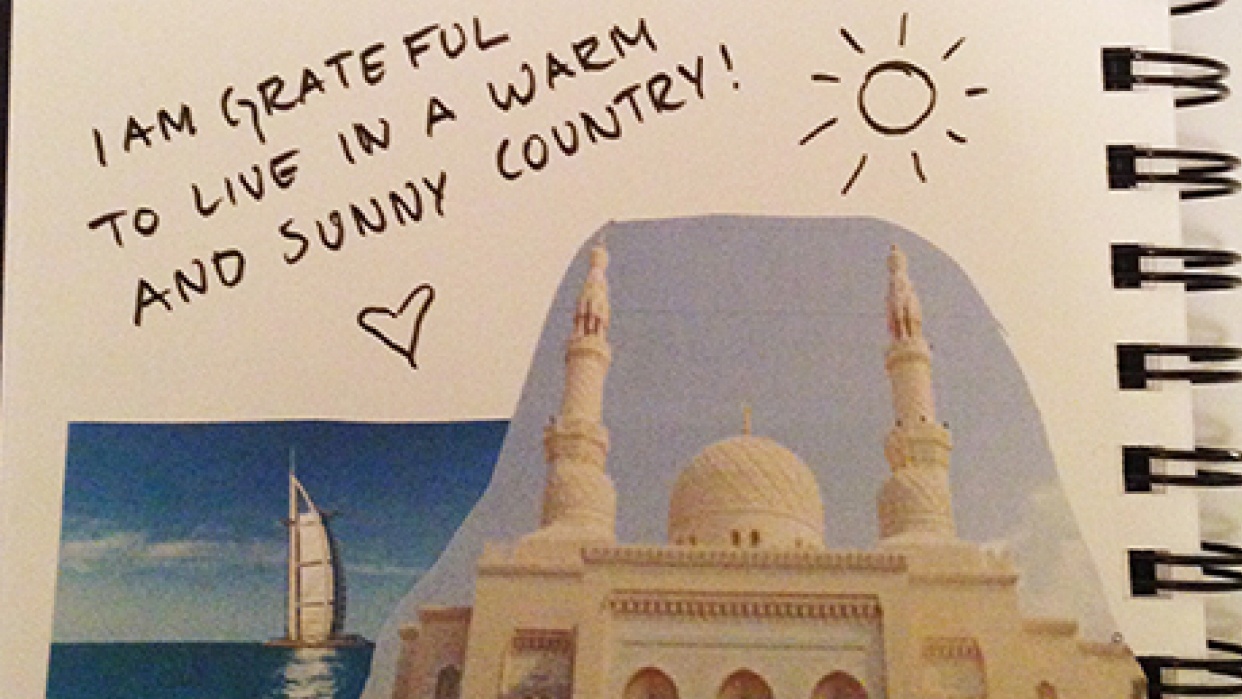 I AM GRATEFUL
TO LIVE IN A WARM
AND SUNNY COUNTRY!